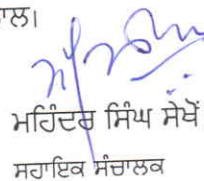 ਾਲ।
ਮਹਿੰਦਰ ਸਿੰਘ ਸੇਖੋਂ
ਸਹਾਇਕ ਸੰਚਾਲਕ